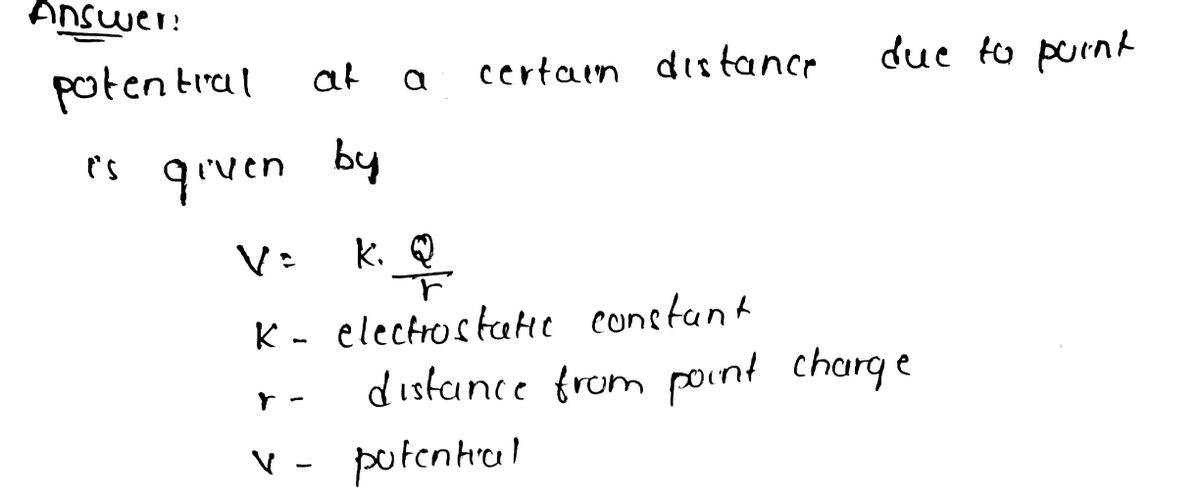 Answer:
potential at a certain distance due to point
is given by
V = K. Q/r
K - electrostatic constant
r - distance from point charge
V - potential